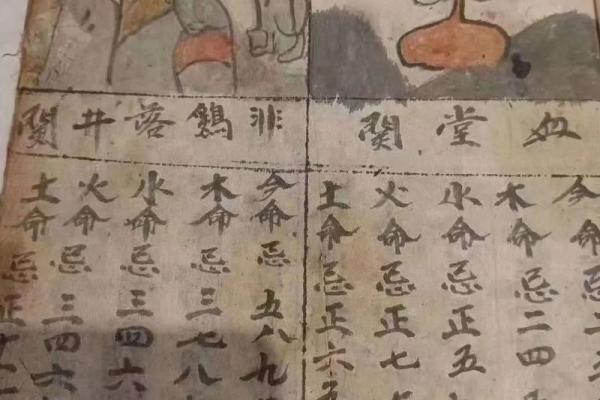 血堂關
今命忌二
木命忌二四
水命忌正五
火命忌正七
土命忌正六
非鷄落井關
今命忌五八九
木命忌三七八
水命忌三四六
火命忌三四六
土命忌正十